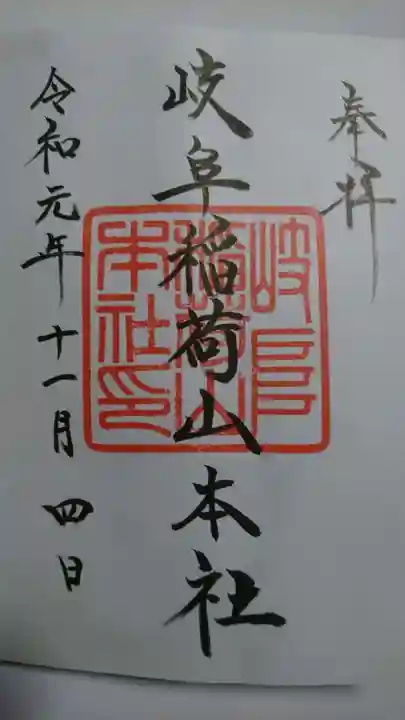 奉拝
岐阜稲荷山本社
岐阜
稲荷山
本社印
令和元年十一月四日